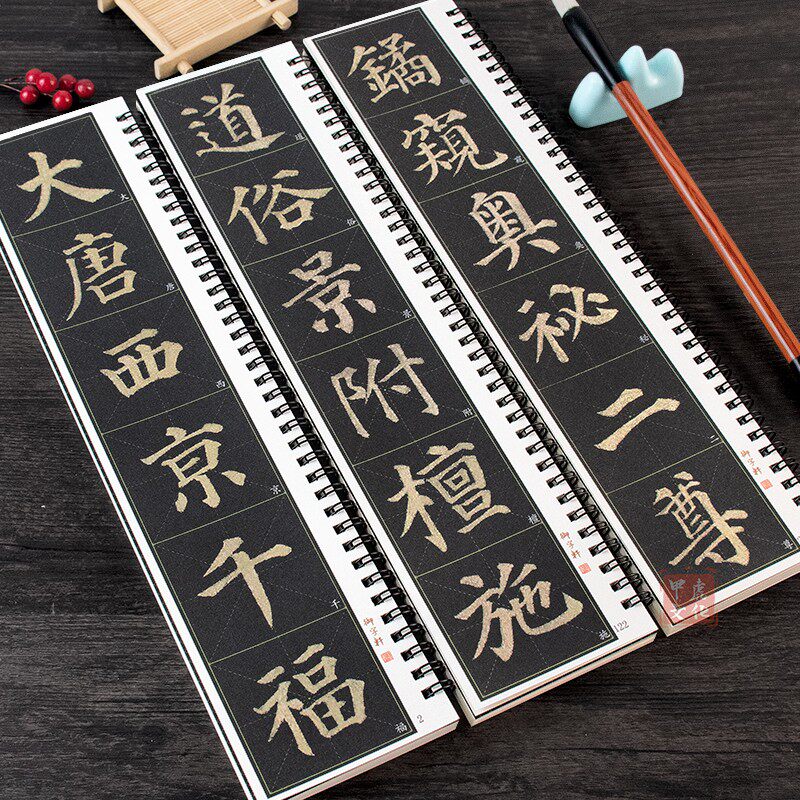 大唐西京千福
大
唐
西
京
千
福
御字軒
2
道俗景附檀施
道
俗
景
附
檀
施
御字軒
122
鐍窺奧祕二尊
秘
二
尊
御字軒
甲虎文化